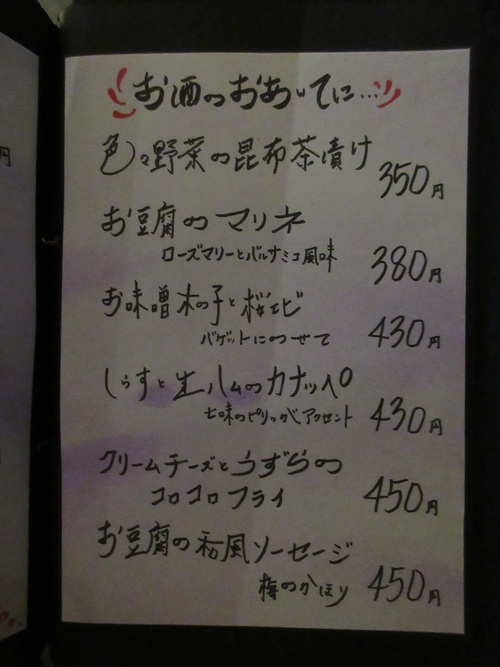 お酒のおあいてに…
色々野菜の昆布茶漬け
350円
お豆腐のマリネ
ローズマリーとバルサミコ風味
380円
お味噌木の子と桜エビ
バゲットにのっせて
430円
しらすと生ハムのカナッペ
七味のピリッがアクセント
430円
クリームチーズとうずらの
コロコロフライ
450円
お豆腐の和風ソーセージ
梅のかほり
450円
円